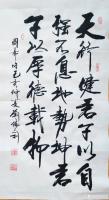 天行健君子以自
强不息地势坤君
子以厚德载物
己亥仲夏